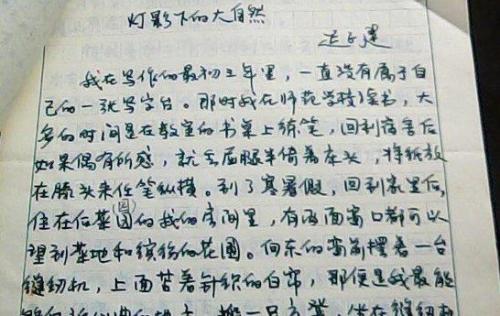 灯影下的大自然
迟子建
我在写作的最初三年里，一直没有属于自
己的一张写字台。那时我在师范学校读书，大
多的时间是在教室的书桌上练笔，回到宿舍后
如果偶有所感，就会屈腿半倚着床头，将纸放
在膝头来任笔纵横。到了寒暑假，回到家里后，
住在菜园的我的房间里，有两面窗口都可以
望到菜地和缤纷的花圃。向东的窗前摆着一台
缝纫机，上面苫着针织的白帘，那便是我最能